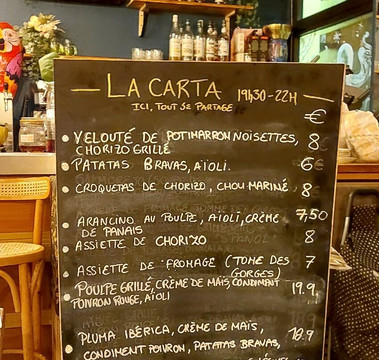 LA CARTA 19h30-22H
ICI, TOUT SE PARTAGE
€
VELOUTÉ DE POTIMARRON NOISETTES, 8
CHORIZO GRILLÉ
PATATAS BRAVAS, AÏOLI. 6€
CROQUETAS DE CHORIZO, CHOU MARINÉ. 8
ARANCINO AU POULPE, AÏOLI, CRÈME 7,50
DE PANAIS
ASSIETTE DE CHORIZO 8
ASSIETTE DE FROMAGE (TOME DES 7
GORGES)
POULPE GRILLÉ, CRÈME DE MAÏS, CONDIMENT 19.9
POIVRON ROUGE, AÏOLI
PLUMA IBÉRICA, CRÈME DE MAÏS, 18.9
CONDIMENT POIVRON, PATATAS BRAVAS,